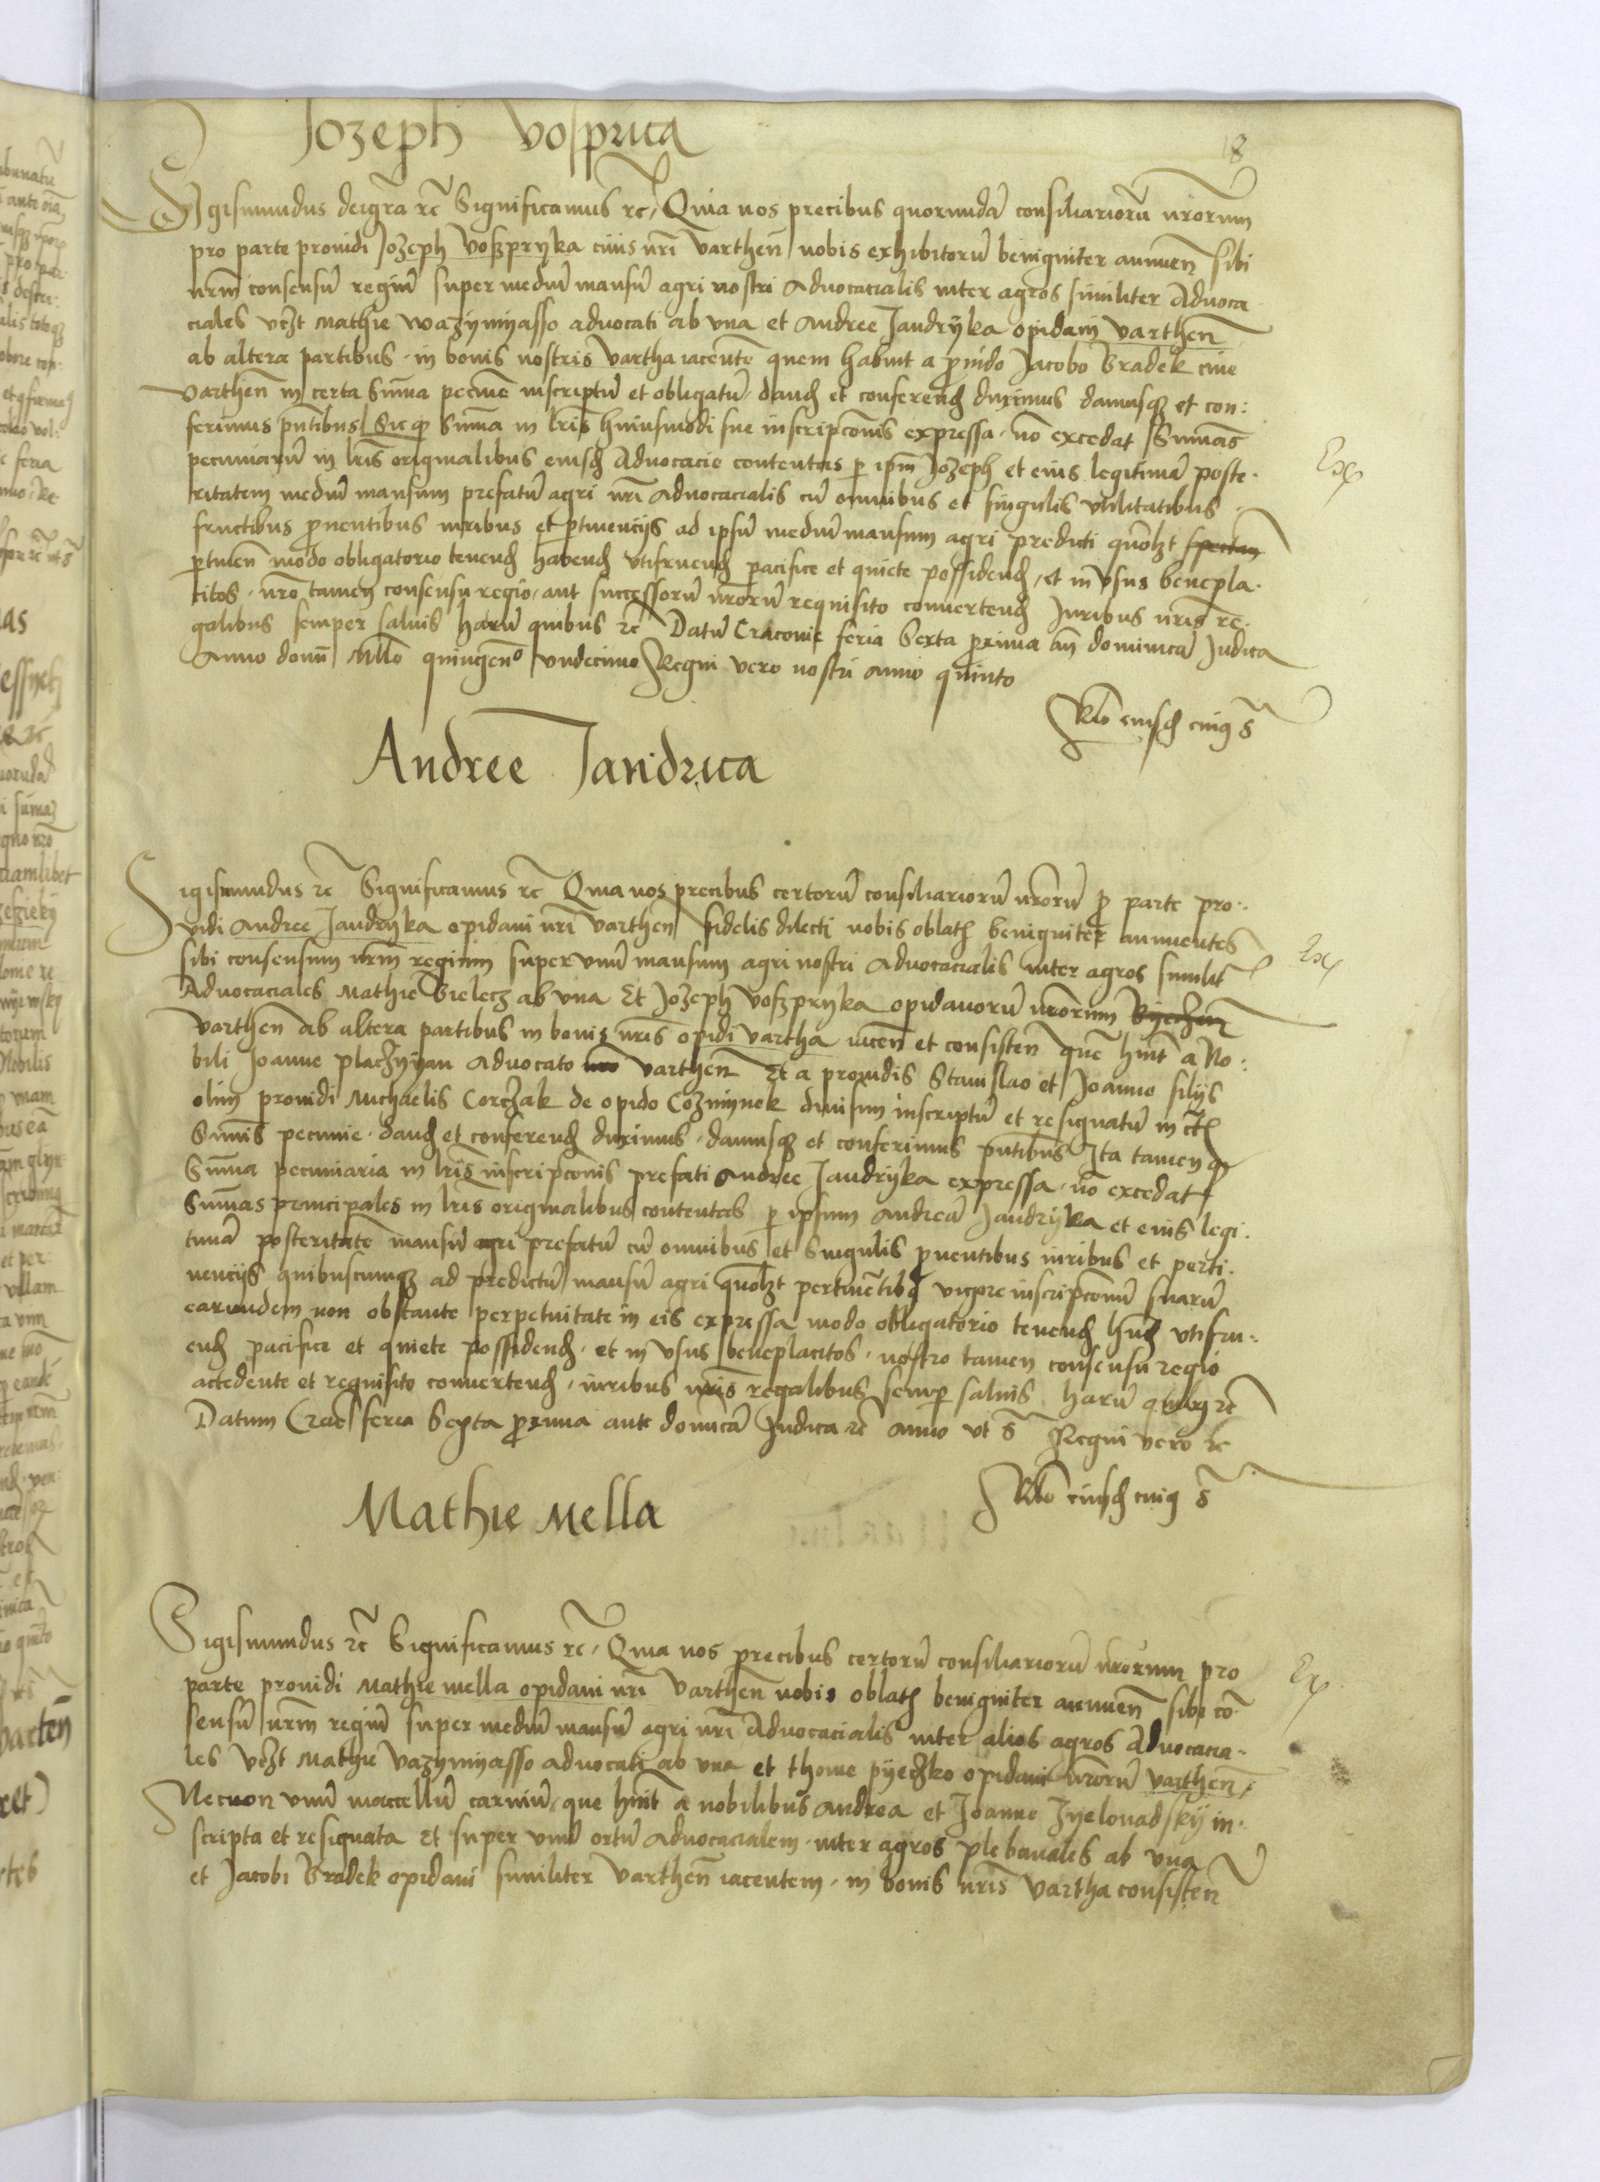 Jozeph Vosprica
18
Sigismundus dei gra rc Significamus rc, Quia nos precibus quorundā consiliariorū nrorum
pro parte prouidi Jozeph Voszpryka ciuis nri Varthen nobis exhibitorū benigniter annuen sibi
nrm consensū regiū super mediū mansū agri nostri Aduocacialis inter agros similiter Aduoca
ciales vczt Mathie Wazymyasso aduocati ab vna et Andree Jandryka opidani Varthen
ab altera partibus in bonis nostris Vartha iacente quem habuit a prouido Jacobo Bradek ciue
Varthen in certa Sūma pecunie inscriptū et obligatū dand et conferend duximus damusqz et con:
ferimus pntibus Sic q Sūma in lris huiusmodi sue inscripconis expressa nō excedat Sūmas
pecuniarū in lris originalibus eiusd Aduocacie contentas p ipm Jozeph et eius legitimā poste.
ritatem mediū mansum prefatū agri nri Aduocacialis cū omnibus et singulis vtilitatibus
fructibus prouentibus iuribus et ptinencijs ad ipsū mediū mansum agri predicti quōlzt spectan
ptinen modo obligatorio tenend habend vtifruend pacifice et quiete possidend, et in vsus benepla.
citos nro tamen consensu regio aut successorū nrorū requisito conuertend Juribus nris re.
galibus semper saluis harū quibus rc Datū Cracouie feria Sexta proxima an dominicā Judica
Anno domi Millō quingenº vndecimo Regni vero nostri anno quinto
Rlō eiusd cuiq S
Ex
Andree Jandrica
Sigismundus rc Significamus rc Quia nos precibus certorū consiliariorū nrorū p parte pro:.
uidi Andree Jandryka opidani nri Varthen fidelis dilecti nobis oblat benigniter annuentes
sibi consensum nrm regium super vnū mansum agri nostri Aduocacialis inter agros similit
Aduocaciales Mathie Bielecz ab vna Et Jozeph Voszpryka opidanorū nrorum
Varthen ab altera partibus in bonis nris opidi Vartha iacen et consisten quē huit a No:
bili Joanne placznyan Aduocato nro Varthen Et a prouidis Stanislao et Joanne filijs
olim prouidi Michaelis Corczak de opido Cozmynek diuisim inscriptū et resignatū in cert
Sūmis pecunie dand et conferend duximus damusqz et conferimus pntibus Ita tamen q
Sūma pecuniaria in lris inscripconis prefati Andree Jandryka expressa nō excedat
Sūmas principales in lris originalibus contentas p ipsum Andreā Jandryka et eius legi.
timā posteritatē mansū agri prefatū cū omnibus et Singulis prouentibus iuribus et perti.
nencijs quibuscunqz ad predictū mansū agri quōlzt pertinētibq vigore inscripconū suarū
earundem non obstante perpetuitate in eis expressa modo obligatorio tenend hnd vtifru:
end pacifice et quiete possidend et in vsus beneplacitos nostro tamen consensu regio
accedente et requisito conuertend iuribus nris regalibus semp saluis harū quibq rc
Datum Crac feria Sexta proxima ante dominicā Judica rc Anno vt S Regni vero rc
Rlō eiusd cuiq S
Ex
Mathie Mella
Sigismundus rc Significamus rc, Quia nos precibus certorū consiliariorū nrorum pro
parte prouidi Mathie mella opidani nri Varthen nobis oblat benigniter annuen sibi cō
sensū nrm regiū super mediū mansū agri nri Aduocacialis inter alios agros Aduocacia-
les vczt Mathie Vazymyasso aduocati ab vna et thome pyeczko opidani nrorū Varthen
Necnon vnū maccellū carniū, que huit a nobilibus Andrea et Joanne Zyelonadsky in.
scripta et resignata Et super vnū ortū aduocacialem inter agros plebanales ab vna
et Jacobi Bradek opidani similiter Varthen iacentem in bonis nris Vartha consisten
Ex